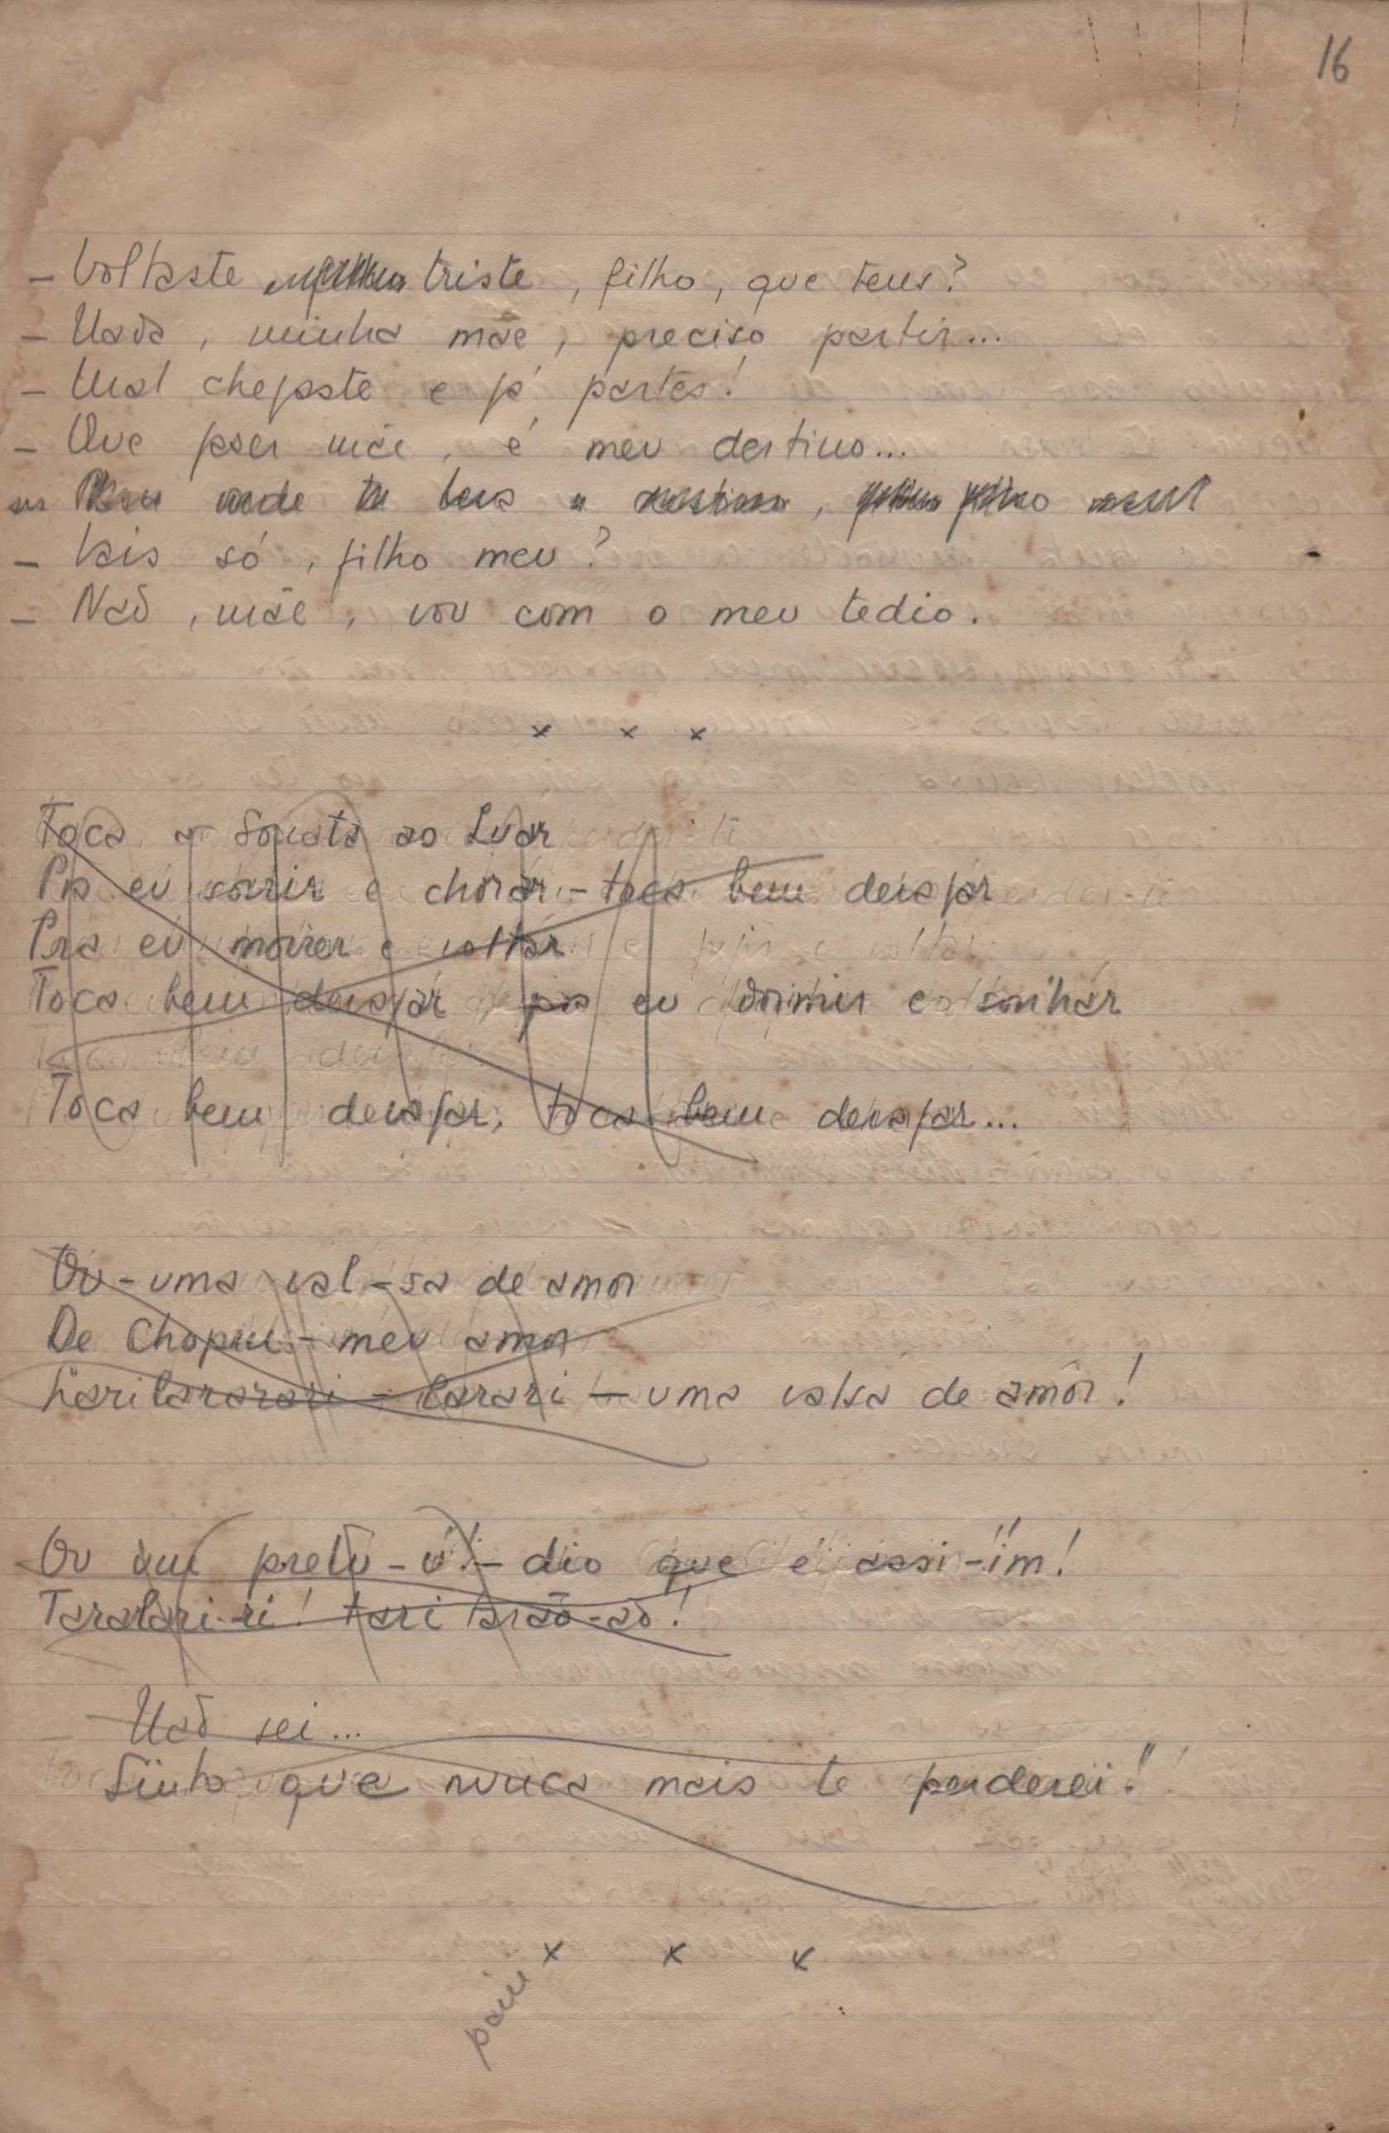 16
– Voltaste triste, filho, que tens?
– Nada, minha mãe, preciso partir...
– Mal chegaste e já partes!
– Que fazer mãe, é meu destino...
onde tu
– Vais só, filho meu?
– Não, mãe, vou com o meu tedio.
x x x
Toca a Sonata ao Luar
Pra eu sorrir e chorar – toca bem devagar
Pra eu morrer e voltar
Toca bem devagar pra eu dormir e sonhar
Toca bem devagar, toca bem devagar...
Ou – uma val – sa de amor
De Chopin – meu amor
Larilararari – larari – uma valsa de amôr!
Ou um prelu – ú! – dio que é assi-im!
Taralari-ri! tari larão-ão!
Não sei...
Sinto que nunca mais te perderei!
x x x